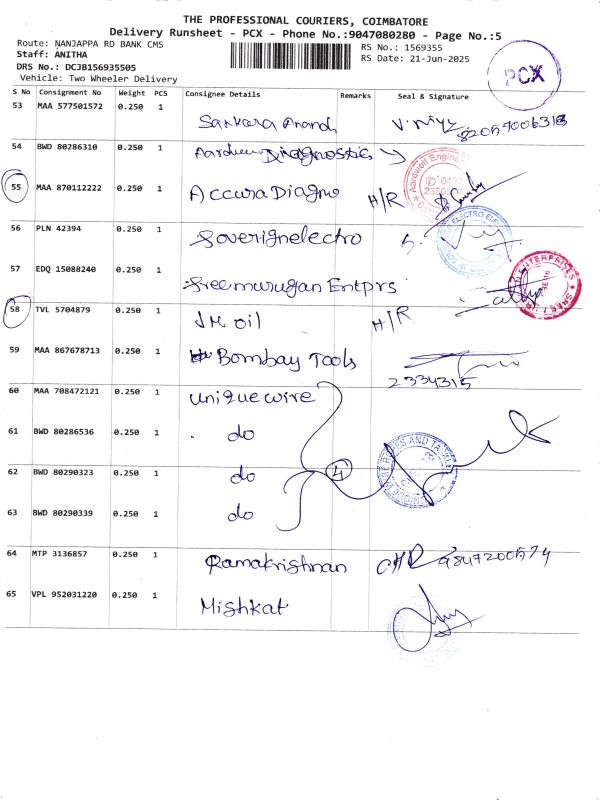 THE PROFESSIONAL COURIERS, COIMBATORE
Delivery Runsheet - PCX - Phone No.:9047080280 - Page No.:5
Route: NANJAPPA RD BANK CMS
RS No.: 1569355
Staff: ANITHA
RS Date: 21-Jun-2025
DRS No.: DCJB156935505
Vehicle: Two Wheeler Delivery
PCX
S No Consignment No Weight PCS Consignee Details Remarks Seal & Signature
53 MAA 577501572 0.250 1 Sankara Anand
54 BWD 80286310 0.250 1 Diagnostics
55 MAA 870112222 0.250 1 Accura Diagno H/R
56 PLN 42394 0.250 1 Soverignelectro
57 EDQ 15088240 0.250 1 Sreemurugan Entprs
ENTERPRISES
58 TVL 5704879 0.250 1 JM oil H/R
59 MAA 867678713 0.250 1 Bombay Tools
2334315
60 MAA 708472121 0.250 1 uniquewire
61 BWD 80286536 0.250 1 do
62 BWD 80290323 0.250 1 do 4
63 BWD 80290339 0.250 1 do
64 MTP 3136857 0.250 1 Ramakrishnan
65 VPL 952031220 0.250 1 Mishkat